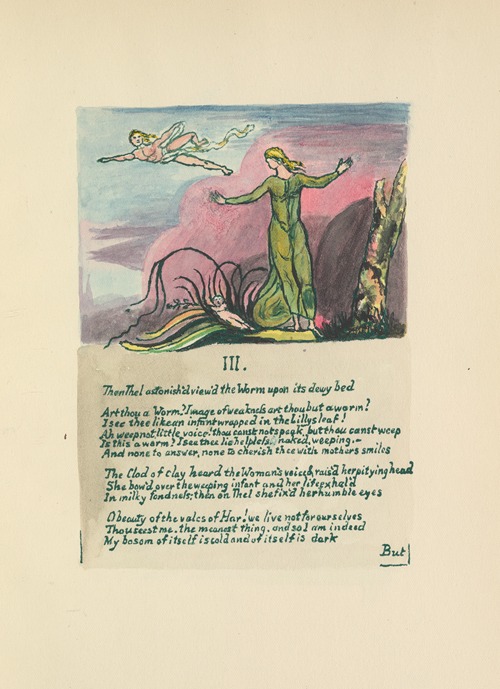 III.
Then Thel astonish'd view'd the Worm upon its dewy bed
Art thou a Worm? Image of weakness art thou but a worm?
I see thee like an infant wrapped in the Lillys leaf!
Ah weep not little voice! thou canst not speak, but thou canst weep
Is this a worm? I see thee lie helpless, naked, weeping.—
And none to answer, none to cherish thee with mothers smiles
The Clod of clay heard the Woman's voice & rais'd her pitying head
She bow'd over the weeping infant and her life exhal'd
In milky fondness; then on Thel she fix'd her humble eyes
O beauty of the vales of Har! we live not for ourselves
Thou seest me. the meanest thing. and so I am indeed
My bosom of itself is cold and of itself is dark
But